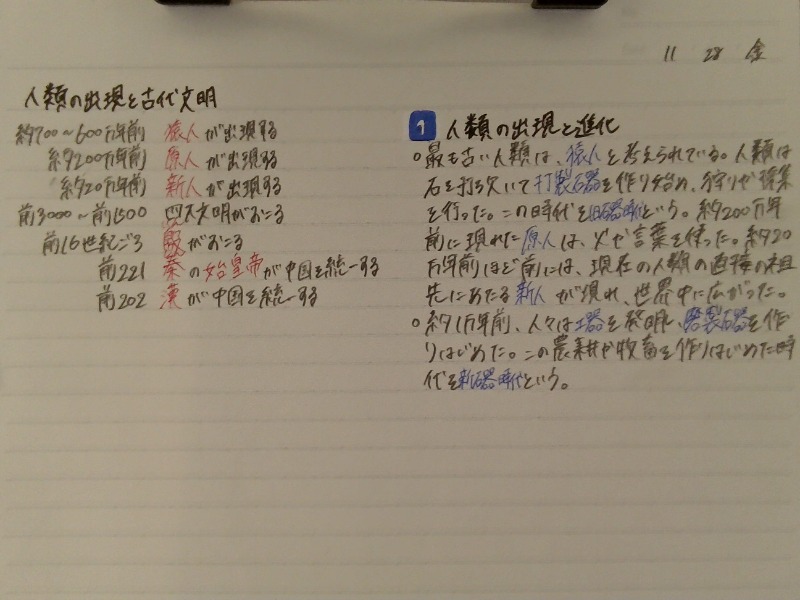 11 28 金
人類の出現と古代文明
約700～600万年前 猿人が出現する
約200万年前 原人が出現する
約20万年前 新人が出現する
前3000～前1500 四大文明がおこる
前16世紀ごろ 殷がおこる
前221 秦の始皇帝が中国を統一する
前202 漢が中国を統一する
1 人類の出現と進化
○最も古い人類は、猿人と考えられている。人類は
石を打ち欠いて打製石器を作り始め、狩りや採集
を行った。この時代を旧石器時代という。約200万年
前に現れた原人は、火や言葉を使った。約20
万年前ほど前には、現在の人類の直接の祖
先にあたる新人が現れ、世界中に広がった。
○約1万年前、人々は土器を発明し、磨製石器を作
りはじめた。この農耕や牧畜を作りはじめた時
代を新石器時代という。